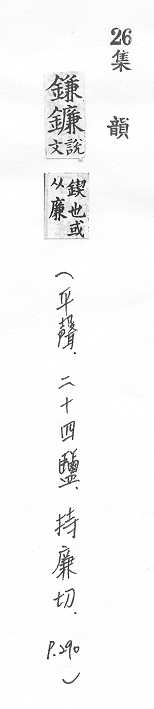 26集韻
鎌鐮說文鍥也或从廉
（平聲．二十四鹽．持廉切．P.290）